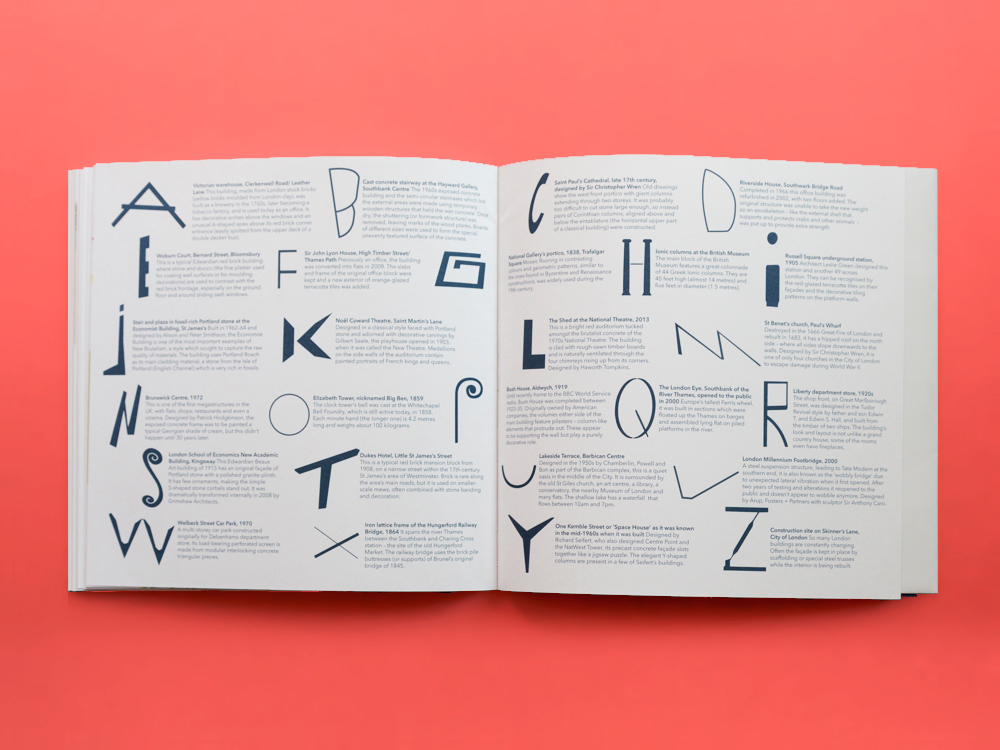 A
Victorian warehouse, Clerkenwell Road/ Leather
Lane This building, made from London stock bricks
(yellow bricks moulded from London clay), was
built as a brewery in the 1760s, later becoming a
tobacco factory, and is used today as an office. It
has decorative arches above the windows and an
unusual A-shaped apex above its red brick corner
entrance (easily spotted from the upper deck of a
double decker bus).
B
Cast concrete stairway at the Hayward Gallery,
Southbank Centre The 1960s exposed concrete
building and the semi-circular staircases which link
the external areas were made using temporary
wooden structures that held the wet concrete. Once
dry, the shuttering (or formwork structure) was
removed, leaving marks of the wood planks. Boards
of different sizes were used to form the special
unevenly textured surface of the concrete.
E
Woburn Court, Bernard Street, Bloomsbury
This is a typical Edwardian red brick building
where stone and stucco (the fine plaster used
for coating wall surfaces or for moulding
decorations) are used to contrast with the
red brick frontage, especially on the ground
floor and around sliding sash windows.
F
Sir John Lyon House, High Timber Street/
Thames Path Previously an office, the building
was converted into flats in 2008. The slabs
and frame of the original office block were
kept and a new exterior of orange-glazed
terracotta tiles was added.
G
j
Stair and plaza in fossil-rich Portland stone at the
Economist Building, St James's Built in 1962-64 and
designed by Alison and Peter Smithson, the Economist
Building is one of the most important examples of
New Brutalism, a style which sought to capture the raw
quality of materials. The building uses Portland Roach
as its main cladding material, a stone from the Isle of
Portland (English Channel) which is very rich in fossils.
K
Noël Coward Theatre, Saint Martin's Lane
Designed in a classical style faced with Portland
stone and adorned with decorative carvings by
Gilbert Seale, the playhouse opened in 1903,
when it was called the New Theatre. Medallions
on the side walls of the auditorium contain
painted portraits of French kings and queens.
N
Brunswick Centre, 1972
This is one of the first megastructures in the
UK, with flats, shops, restaurants and even a
cinema. Designed by Patrick Hodgkinson, the
exposed concrete frame was to be painted a
typical Georgian shade of cream, but this didn't
happen until 30 years later.
O
Elizabeth Tower, nicknamed Big Ben, 1859
The clock tower's bell was cast at the Whitechapel
Bell Foundry, which is still active today, in 1858.
Each minute hand (the longer one) is 4.2 metres
long and weighs about 100 kilograms.
P
S
London School of Economics New Academic
Building, Kingsway This Edwardian Beaux
Art building of 1913 has an original façade of
Portland stone with a polished granite plinth.
It has few ornaments, making the simple
S-shaped stone corbels stand out. It was
dramatically transformed internally in 2008 by
Grimshaw Architects.
T
Dukes Hotel, Little St James's Street
This is a typical red brick mansion block from
1908, on a narrow street within the 17th-century
St James's area of Westminster. Brick is rare along
the area's main roads, but it is used on smaller-
scale mews, often combined with stone banding
and decoration.
W
Welbeck Street Car Park, 1970
A multi storey car park constructed
originally for Debenhams department
store. Its load bearing perforated screen is
made from modular interlocking concrete
triangular pieces.
X
Iron lattice frame of the Hungerford Railway
Bridge, 1864 It spans the river Thames
between the Southbank and Charing Cross
station – the site of the old Hungerford
Market. The railway bridge uses the brick pile
buttresses (or supports) of Brunel's original
bridge of 1845.
C
Saint Paul's Cathedral, late 17th century,
designed by Sir Christopher Wren Old drawings
show the west front portico with giant columns
extending through two storeys. It was probably
too difficult to cut stone large enough, so instead
pairs of Corinthian columns, aligned above and
below the entablature (the horizontal upper part
of a classical building) were constructed.
D
Riverside House, Southwark Bridge Road
Completed in 1966 this office building was
refurbished in 2002, with two floors added. The
original structure was unable to take the new weight
so an exoskeleton - like the external shell that
supports and protects crabs and other animals -
was put up to provide extra strength.
National Gallery's portico, 1838, Trafalgar
Square Mosaic flooring in contrasting
colours and geometric patterns, similar to
the ones found in Byzantine and Renaissance
constructions, was widely used during the
19th century.
H
Ionic columns at the British Museum
The main block of the British
Museum features a great colonnade
of 44 Greek Ionic columns. They are
45 feet high (almost 14 metres) and
five feet in diameter (1.5 metres).
i
Russell Square underground station,
1905 Architect Leslie Green designed this
station and another 49 across
London. They can be recognised by
the red glazed terracotta tiles on their
façades and the decorative tiling
patterns on the platform walls.
L
The Shed at the National Theatre, 2013
This is a bright red auditorium tucked
amongst the brutalist concrete of the
1970s National Theatre. The building
is clad with rough-sawn timber boards
and is naturally ventilated through the
four chimneys rising up from its corners.
Designed by Haworth Tompkins.
M
St Benet's church, Paul's Wharf
Destroyed in the 1666 Great Fire of London and
rebuilt in 1683, it has a hipped roof on the north
side - where all sides slope downwards to the
walls. Designed by Sir Christopher Wren, it is
one of only four churches in the City of London
to escape damage during World War II.
Bush House, Aldwych, 1919
Until recently home to the BBC World Service
radio, Bush House was completed between
1923-35. Originally owned by American
companies, the volumes either side of the
main building feature pilasters – column-like
elements that protrude out. These appear
to be supporting the wall but play a purely
decorative role.
Q
The London Eye, Southbank of the
River Thames, opened to the public
in 2000 Europe's tallest Ferris wheel,
it was built in sections which were
floated up the Thames on barges
and assembled lying flat on piled
platforms in the river.
R
Liberty department store, 1920s
The shop front, on Great Marlborough
Street, was designed in the Tudor
Revival style by father and son Edwin
T. and Edwin S. Hall, and built from
the timber of two ships. The building's
look and layout is not unlike a grand
country house, some of the rooms
even have fireplaces.
U
Lakeside Terrace, Barbican Centre
Designed in the 1950s by Chamberlin, Powell and
Bon as part of the Barbican complex, this is a quiet
oasis in the middle of the City. It is surrounded by
the old St Giles church, an art centre, a library, a
conservatory, the nearby Museum of London and
many flats. The shallow lake has a waterfall that
flows between 10am and 7pm.
V
London Millennium Footbridge, 2000
A steel suspension structure, leading to Tate Modern at the
southern end, it is also known as the 'wobbly bridge' due
to unexpected lateral vibration when it first opened. After
two years of testing and alterations it reopened to the
public and doesn't appear to wobble anymore. Designed
by Arup, Fosters + Partners with sculptor Sir Anthony Caro.
Y
One Kemble Street or 'Space House' as it was known
in the mid-1960s when it was built Designed by
Richard Seifert, who also designed Centre Point and
the NatWest Tower, its precast concrete façade slots
together like a jigsaw puzzle. The elegant Y-shaped
columns are present in a few of Seifert's buildings.
Z
Construction site on Skinner's Lane,
City of London So many London
buildings are constantly changing.
Often the façade is kept in place by
scaffolding or special steel trusses
while the interior is being rebuilt.